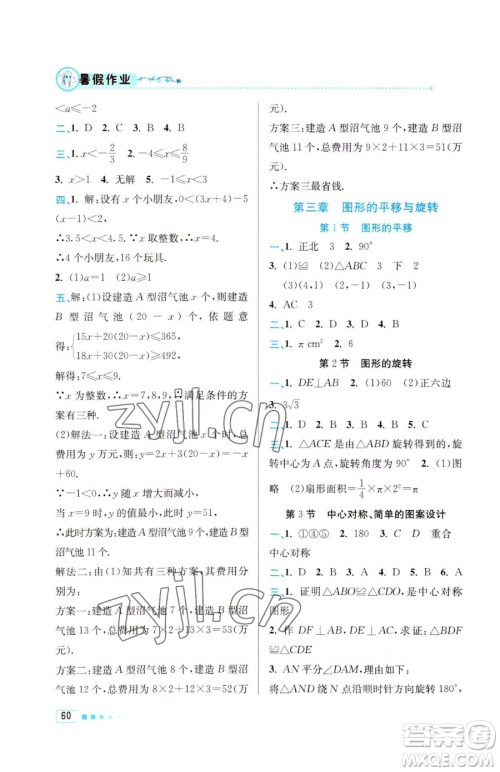 暑假作业
<a≤-2
二、1. D 2. C 3. D
三、1. x<-2/3 2. -4≤x≤8/9
3. x>1 4. 无解 5. -1≤x<3
四、1. 解:设有 x 个小朋友,0<(4x+4)-6(x-1)<3
∴3.5<x<5,x 为整数,∴x=4
∴4 个小朋友,16 个玩具.
2. (1)a=1 (2)a≥1
五、解:(1)设建造 A 型沼气池 x 个,则建造
B 型沼气池(20-x)个,依题意
得:{15x+20(20-x)≤365,
18x+30(20-x)≥492,
解得:7≤x≤9.
∵x 为整数,∴x=7,8,9,∴满足条件的方
案有三种.
(2)解法一:设建造 A 型沼气池 x 个时,总费
用为 y 万元,则:y=2x+3(20-x)=-x
+60.
∵-1<0,∴y 随 x 增大而减小,
当 x=9 时,y 的值最小,此时 y=51(万元).
∴此时方案为:建造 A 型沼气池 9 个,建造 B 型沼
气池 11 个.
解法二:由(1)知共有三种方案,其费用分
别为:
方案一:建造 A 型沼气池 7 个,建造 B 型沼
气池 13 个,总费用为 7×2+13×3=53(万
元).
方案二:建造 A 型沼气池 8 个,建造 B 型沼
气池 12 个,总费用为 8×2+12×3=52(万
60
元).
方案三:建造 A 型沼气池 9 个,建造 B 型沼
气池 11 个,总费用为 9×2+11×3=51(万
元).
∴方案三最省钱.
第三章 图形的平移与旋转
第 1 节 图形的平移
一、1. 正北 3 2. 90°
3. (1)≌ (2)△ABC 3 下 2
(3)(4,1) (4)(1,2)
4. AC 3
二、1. D 2. C 3. C 4. D
三、1. π cm² 2. 6
第 2 节 图形的旋转
一、1. DE⊥AB 2. (1)60 (2)正六边
3. 3√3
二、1. B 2. A 3. B 4. B 5. C
三、1. △ACE 是由△ABD 旋转得到,旋
转中心为 A,旋转角度为 90° 2. (1)图
略 (2)扇形面积=1/4×π×2²=π
第 3 节 中心对称、简单的图案设计
一、1. ①④⑤ 2. 180 3. C D 重合
中心对称
二、1. D 2. B 3. A 4. D 5. C
三、1. 证明△ABO≌△CDO,是中心对称
图形
2. 作 DF⊥AB,DE⊥AC,求证:△BDF
≌△CDE
3. AN 平分∠DAM,理由:由题意
将△AND 绕点 N 沿顺时针方向旋转 180°,
zyjl.cn
zyjl.cn